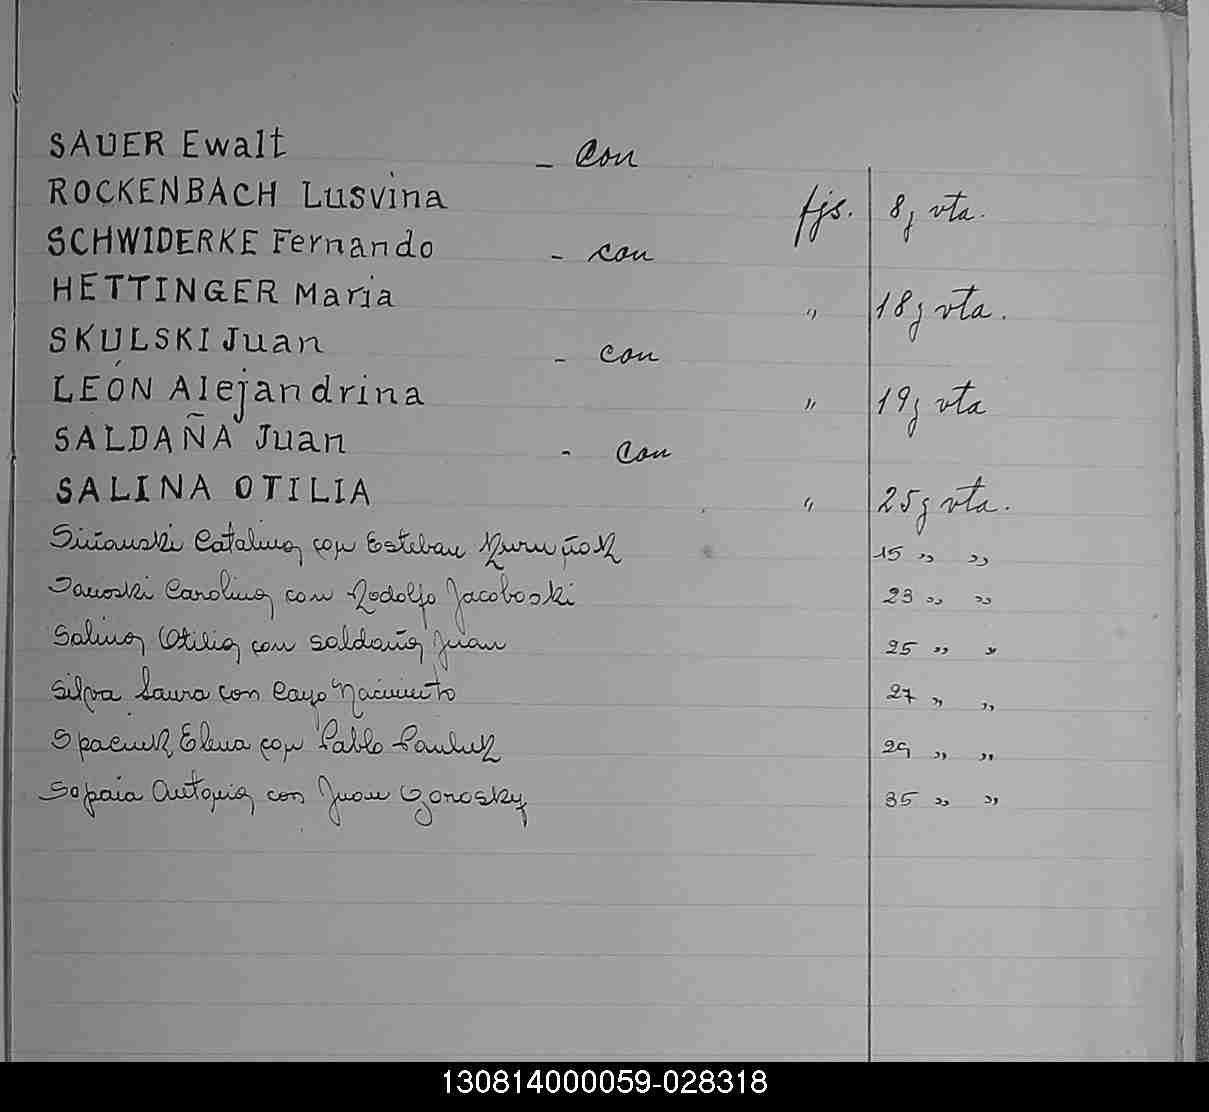 SAUER Ewalt - con
ROCKENBACH Lusvina fjs. 8j vta.
SCHWIDERKE Fernando - con
HETTINGER Maria " 18j vta.
SKULSKI Juan - con
LEÓN Alejandrina " 19j vta
SALDAÑA Juan - con
SALINA OTILIA " 25j vta.
Catalina con Esteban 15 " "
Carolina con Rodolfo Jacoboski 23 " "
Salina Otilia con Saldaña Juan 25 " "
Silva Laura con Cayo 27 " "
Spaciuk Elena con Pablo Pauluk 29 " "
Sopaia Antonia con Juan Ozorosky 35 " "
130814000059-028318